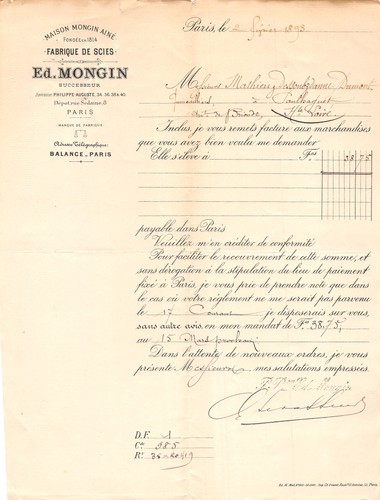 MAISON MONGIN AINÉ
FONDÉE EN 1814
FABRIQUE DE SCIES
ED. MONGIN
SUCCESSEUR
PHILIPPE-AUGUSTE, 34, 36, 38 & 40
Dépôt, rue Sedaine, 8
PARIS
MARQUE DE FABRIQUE
Adresse Télégraphique:
BALANCE_PARIS
Paris, le 2 février 1893
Messieurs Mathieu Dumont
à Paulhaguet
Hte Loire
Inclus, je vous remets facture aux marchandises
que vous avez bien voulu me demander
Elle s'élève à Frs 38 75
payable dans Paris
Veuillez m'en créditer de conformité
Pour faciliter le recouvrement de cette somme, et
sans dérogation à la stipulation du lieu de paiement
fixé à Paris, je vous prie de prendre note que dans
le cas où votre règlement ne me serait pas parvenu
le 17 Courant je disposerais sur vous,
sans autre avis, en mon mandat de Frs 38.75,
au 15 Mars prochain
Dans l'attente de nouveaux ordres, je vous
présente, Messieurs mes salutations empressées.
Ed. Mongin
D.F. 1
Ce 985
R: